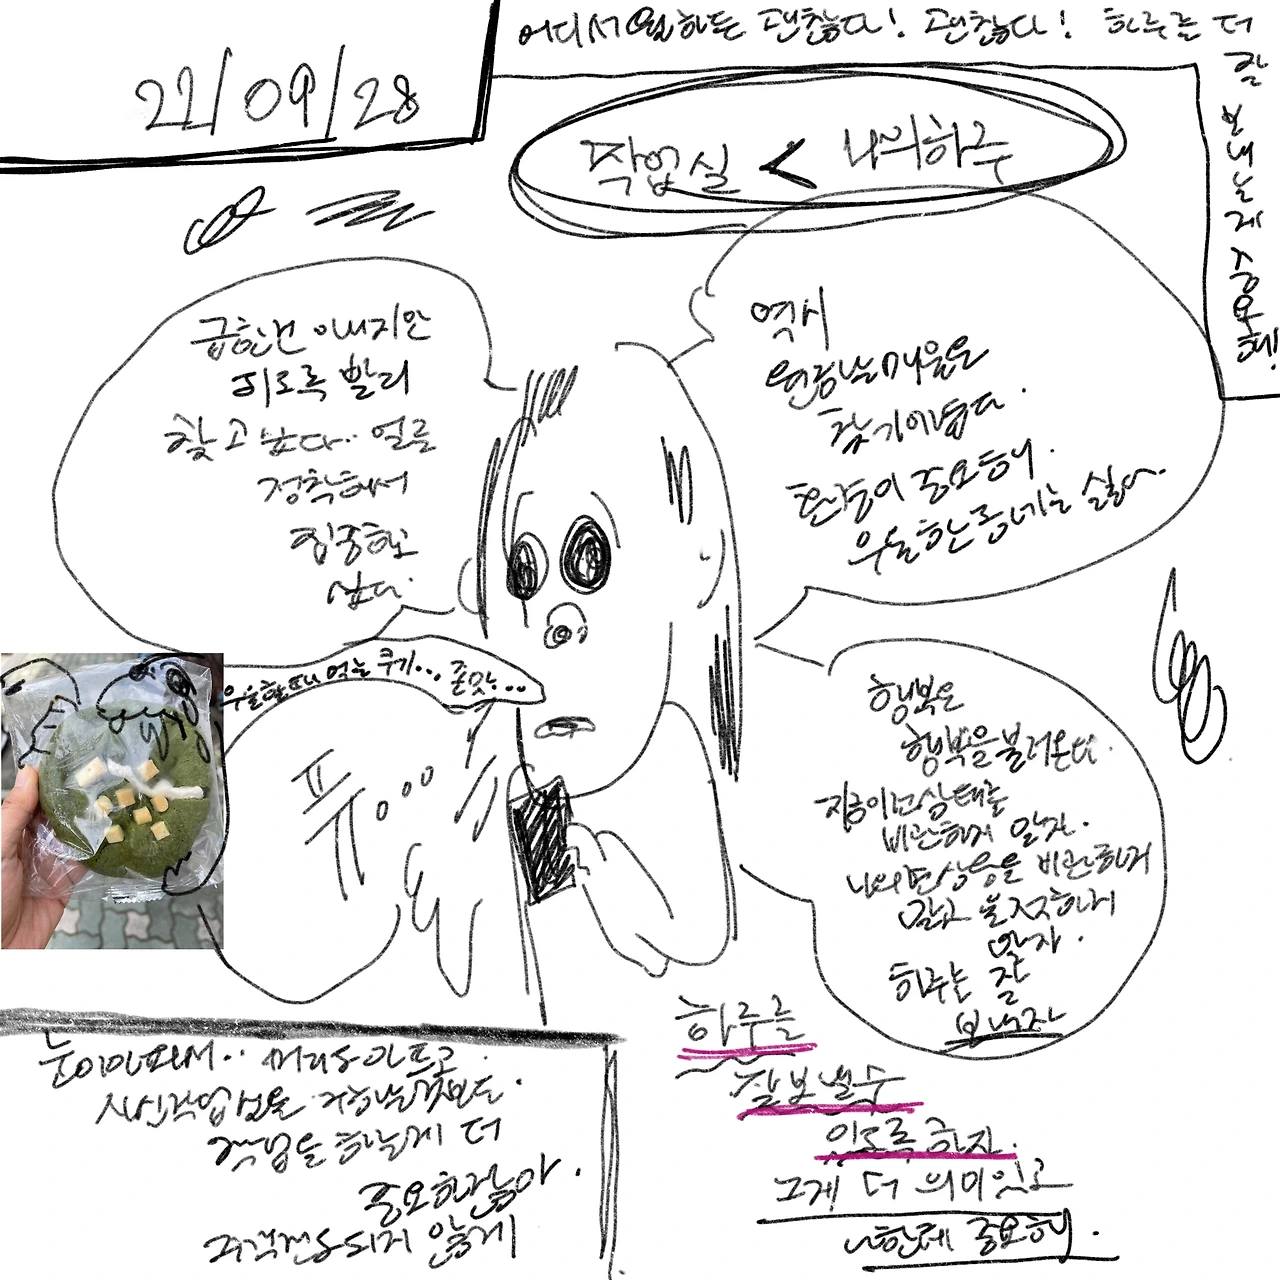 22/09/28
어디서 일하든 괜찮다! 괜찮다! 하루를 더
잘
보
내
는
게
중
요
해!
작업실 < 나의하루
급한건 아니지만
되도록 빨리
찾고싶다.. 얼른
정착해서
집중하고
싶다.
역시
맘에드는
찾기어렵다.
환경이 중요해.
우울한 동네는 싫다.
우울할때 먹는 쿠키... 존맛...
퓨...
행복은
행복을 불러온다.
지금 이 상태를
비관하게 말자.
나의 상황을 비관하지
말고 불
말자.
하루는 잘
보내자
눈이아파서.. 머리도 아프고.
작업실을
작업을 하는게 더
중요하잖아.
주객전도되지 않게
하루를
잘보낼수
있도록 하자.
그게 더 의미있고
나한테 중요해.